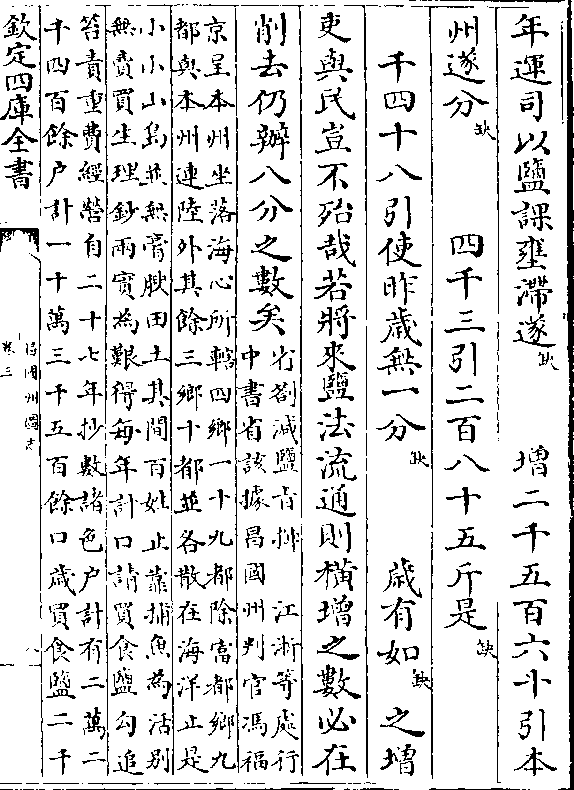 年運司以鹽課壅滯遂缺　增二千五百六十引本
州遂分缺　四千三引二百八十五斤是缺
千四十八引使昨歲無一分缺　歲有如缺之增
吏與民豈不殆哉若將來鹽法流通則橫增之數必在
削去仍辦八分之數矣
省劄減鹽　江淅等處行
中書省該據昌國州判官馮福
京呈本州坐落海心所轄四鄉一十九都除富都鄉九
都與本州連陸外其餘三鄉十都並各散在海洋止是
小小山島並無膏腴田土其間百姓止靠捕魚為活别
無賣買生理鈔兩實為艱得每年計口請買食鹽勾追
笞責重費經營自二十七年抄數諸色户計有二萬二
千四百餘户計一十萬三千五百餘口歲買食鹽二千
欽定四庫全書
昌國州圖志
卷三
八